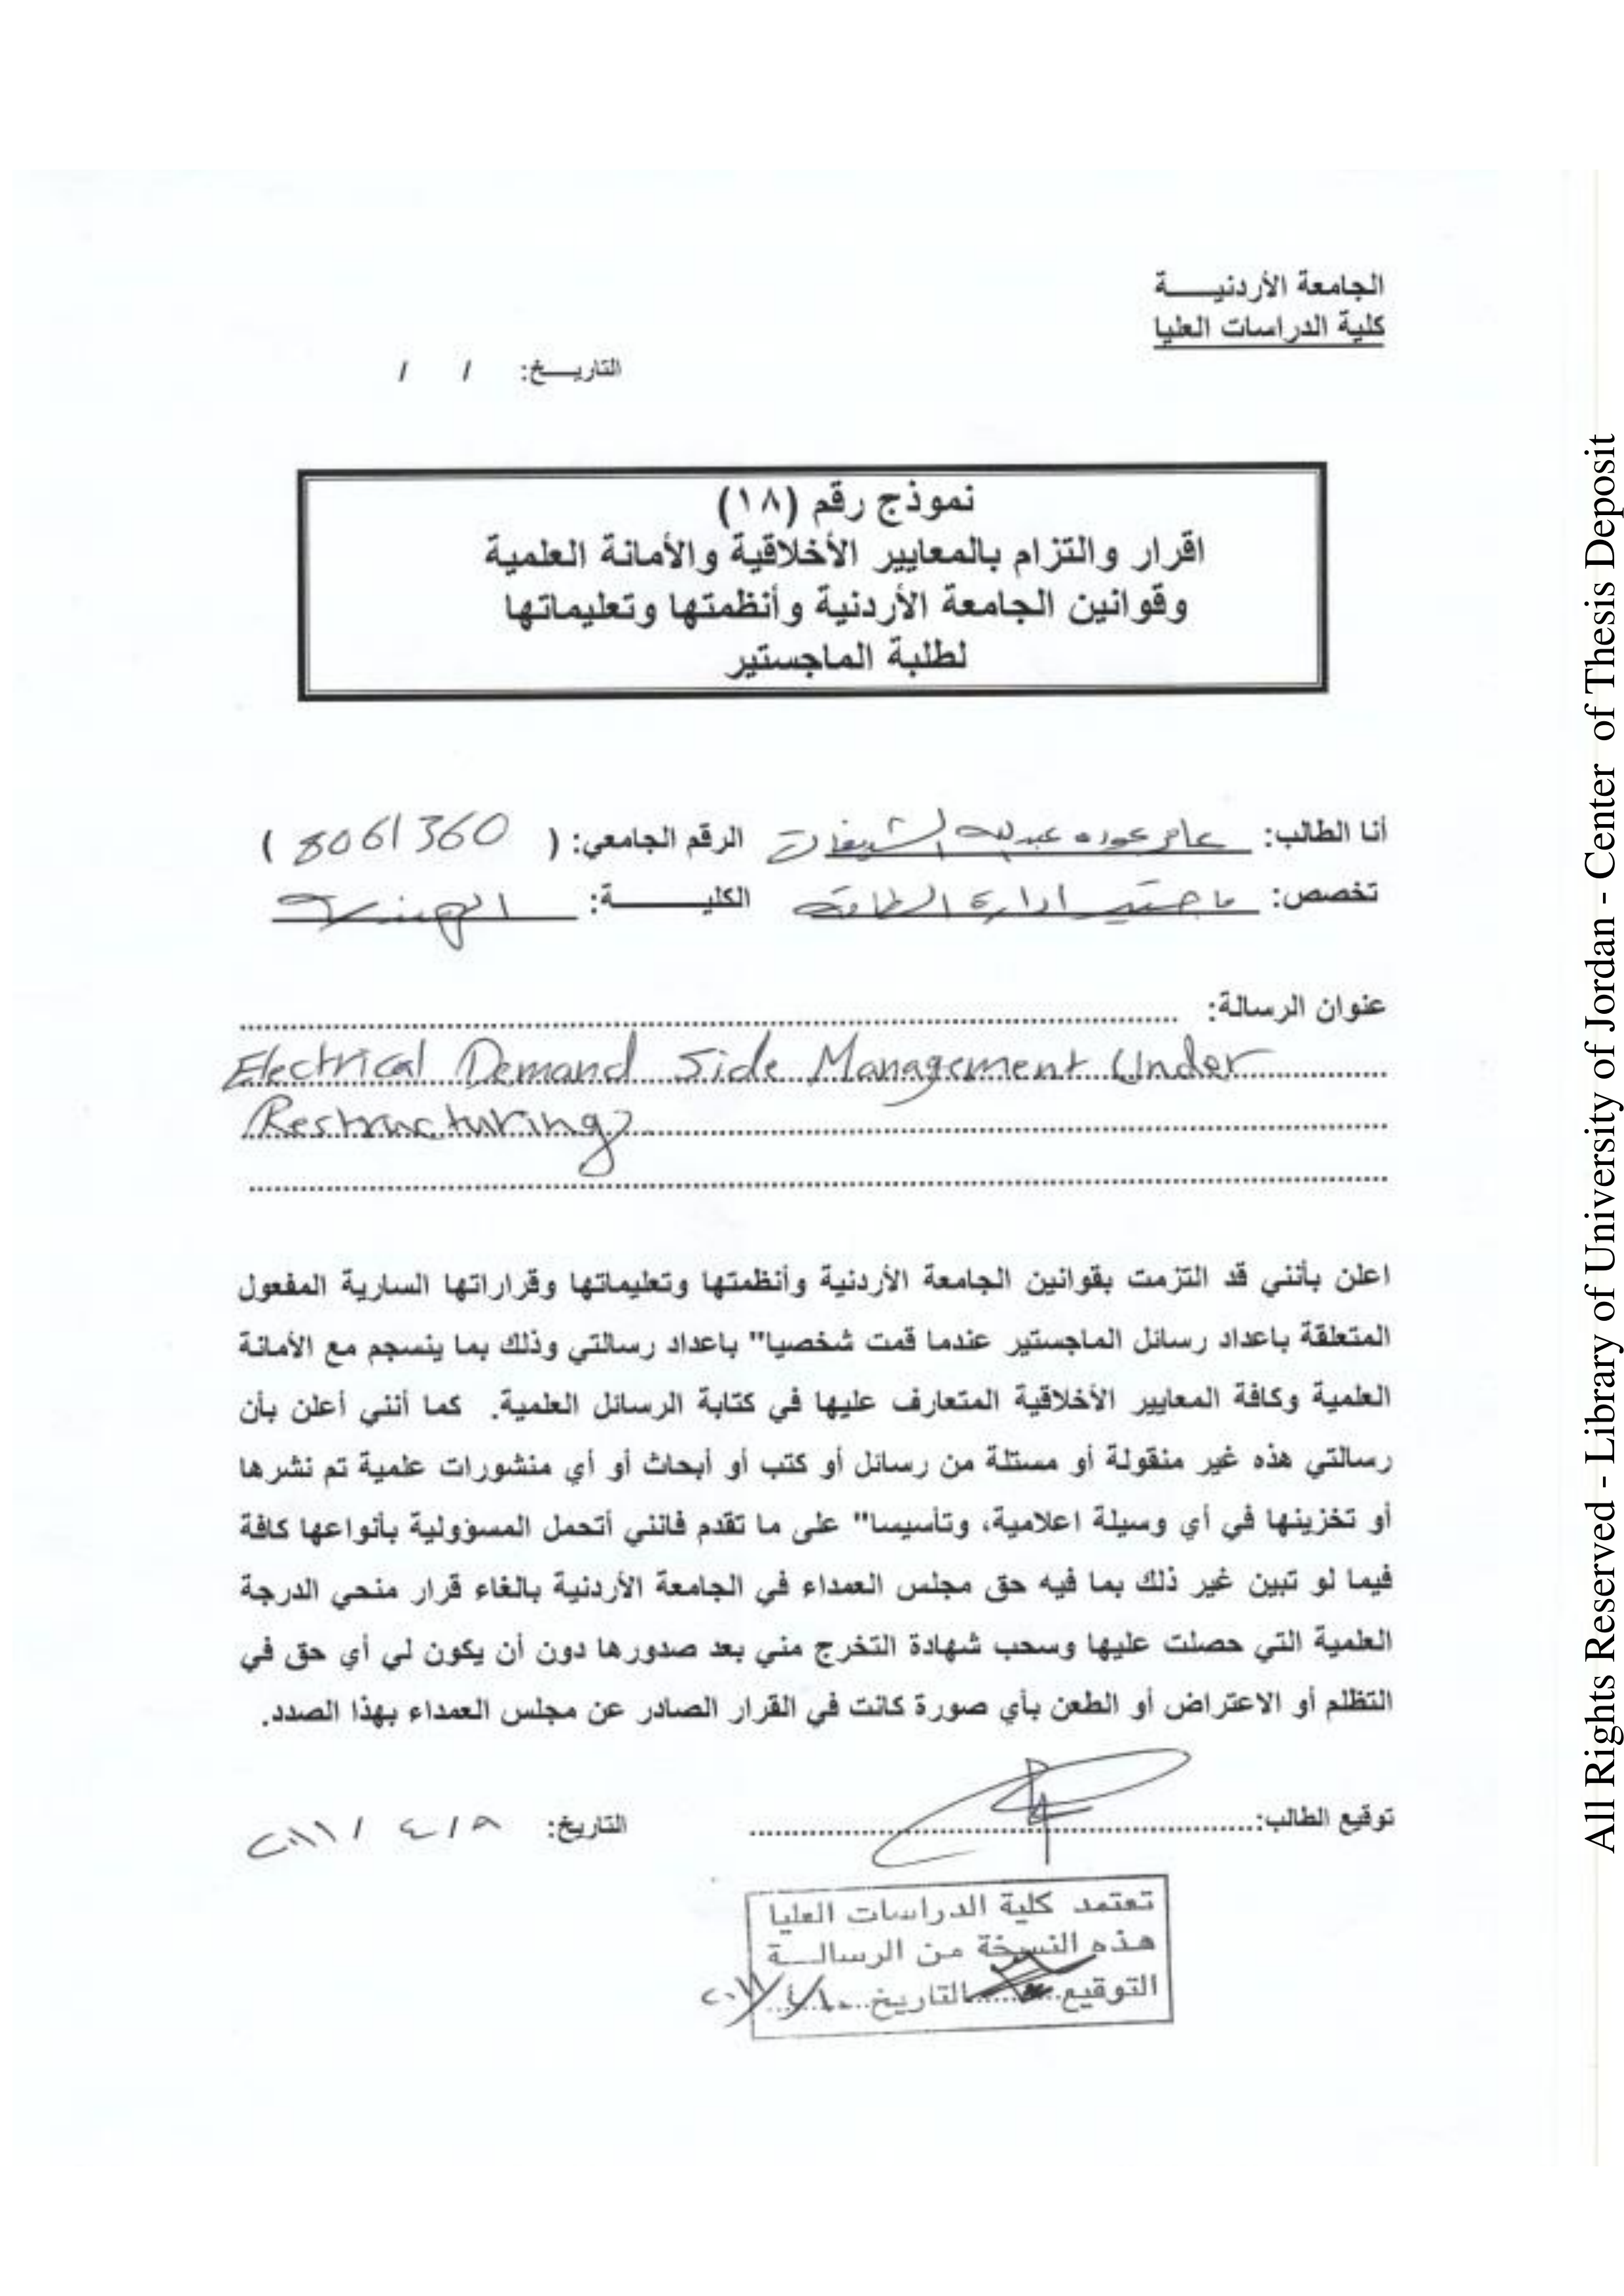 الجامعة الأردنيـــــة
كلية الدراسات العليا
التاريـــخ: / /
نموذج رقم (١٨)
اقرار والتزام بالمعايير الأخلاقية والأمانة العلمية
وقوانين الجامعة الأردنية وأنظمتها وتعليماتها
لطلبة الماجستير
أنا الطالب: عامر عوده عبدالله الشديفات الرقم الجامعي: ( 8061360 )
تخصص: ماجستير ادارة الطاقة الكليـــــــة: الهندسة
عنوان الرسالة:
Electrical Demand Side Management Under
Restructuring
اعلن بأنني قد التزمت بقوانين الجامعة الأردنية وأنظمتها وتعليماتها وقراراتها السارية المفعول
المتعلقة باعداد رسائل الماجستير عندما قمت شخصيا" باعداد رسالتي وذلك بما ينسجم مع الأمانة
العلمية وكافة المعايير الأخلاقية المتعارف عليها في كتابة الرسائل العلمية. كما أنني أعلن بأن
رسالتي هذه غير منقولة أو مستلة من رسائل أو كتب أو أبحاث أو أي منشورات علمية تم نشرها
أو تخزينها في أي وسيلة اعلامية، وتأسيسا" على ما تقدم فانني أتحمل المسؤولية بأنواعها كافة
فيما لو تبين غير ذلك بما فيه حق مجلس العمداء في الجامعة الأردنية بالغاء قرار منحي الدرجة
العلمية التي حصلت عليها وسحب شهادة التخرج مني بعد صدورها دون أن يكون لي أي حق في
التظلم أو الاعتراض أو الطعن بأي صورة كانت في القرار الصادر عن مجلس العمداء بهذا الصدد.
توقيع الطالب: التاريخ: ٨ / ٤ / ٢٠١١
تعتمد كلية الدراسات العليا
هذه النسخة من الرسالــة
التوقيع التاريخ ١٠/٤/٢٠١١
All Rights Reserved - Library of University of Jordan - Center of Thesis Deposit